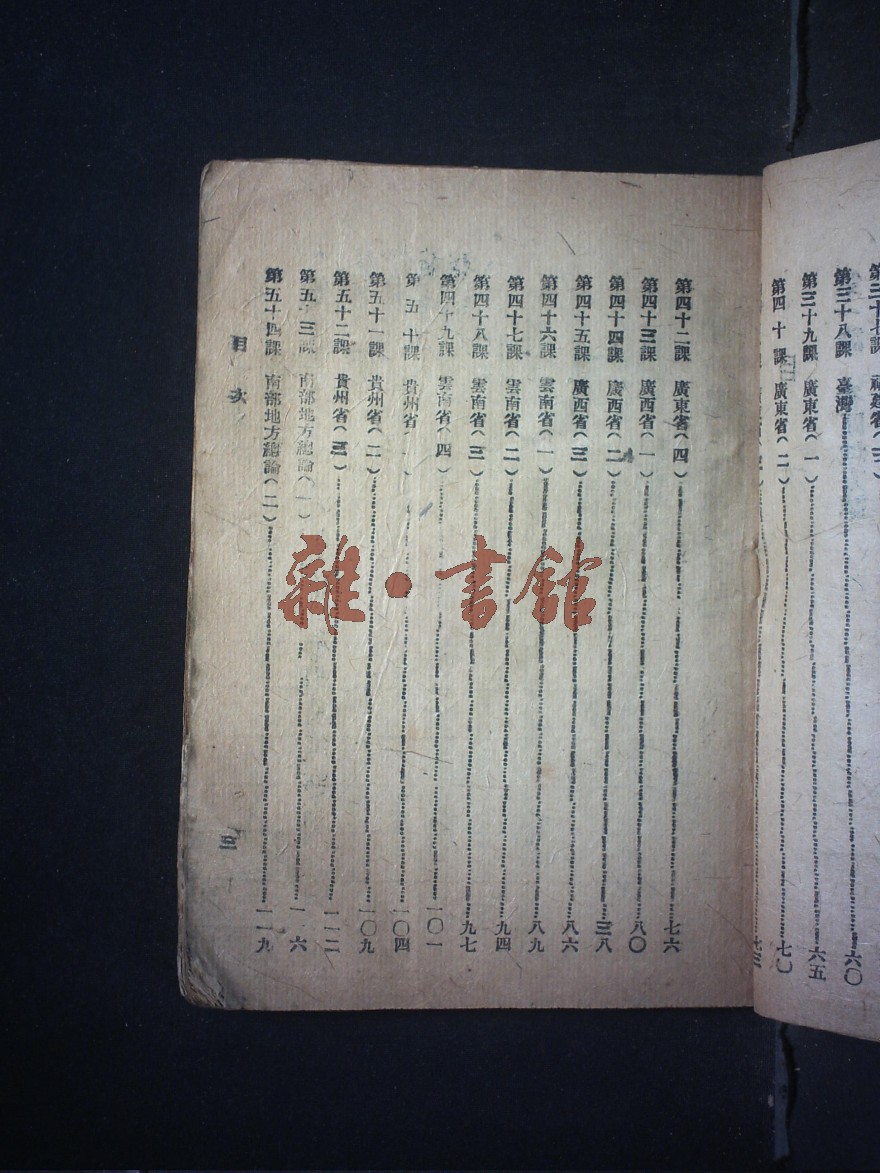 第三十七課 福建省(三)
第三十八課 臺灣……六〇
第三十九課 廣東省(一)……六五
第四十課 廣東省(二)……七〇
第四十二課 廣東省(四)……七六
第四十三課 廣西省(一)……八〇
第四十四課 廣西省(二)……三八
第四十五課 廣西省(三)……八六
第四十六課 雲南省(一)……八九
第四十七課 雲南省(二)……九四
第四十八課 雲南省(三)……九七
第四十九課 雲南省(四)……一〇一
第五十課 貴州省(一)……一〇四
第五十一課 貴州省(二)……一〇九
第五十二課 貴州省(三)……一一二
第五十三課 南部地方總論(一)……一一六
第五十四課 南部地方總論(二)……一一九
目次
雜·書館